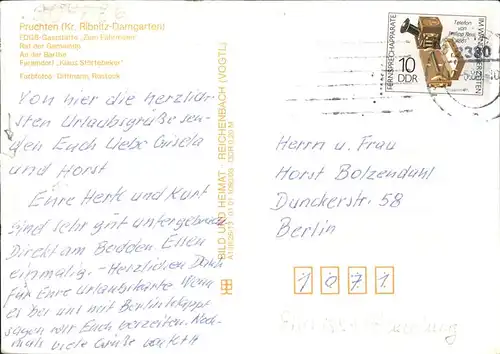 Pruchten (Kr. Ribnitz-Damgarten)
FDGB-Gaststätte „Zum Fährmann"
Rat der Gemeinde
An der Barthe
Feriendorf „Klaus Störtebeker"
Farbfotos: Dittmann, Rostock
Von hier die herzlich-
sten Urlaubsgrüße sen-
den Euch Liebe Gisela
und Horst
Eure Herta und Kunt
sind sehr gut untergebracht
Direkt am Bodden. Essen
einmalig. - Herzlichen Dank
für Eure Urlaubskarte Wenn
es bei uns mit Berlin klappt
sagen wir Euch vorzeiten. Noch-
mals viele Grüße
BILD UND HEIMAT · REICHENBACH (VOGTL)
FERNSPRECHAPPARATE
10
DDR
Telefon
von
IM WANDEL DER ZEITEN
2380
Herrn u. Frau
Horst Bolzendahl
Dunckerstr. 58
Berlin
1071